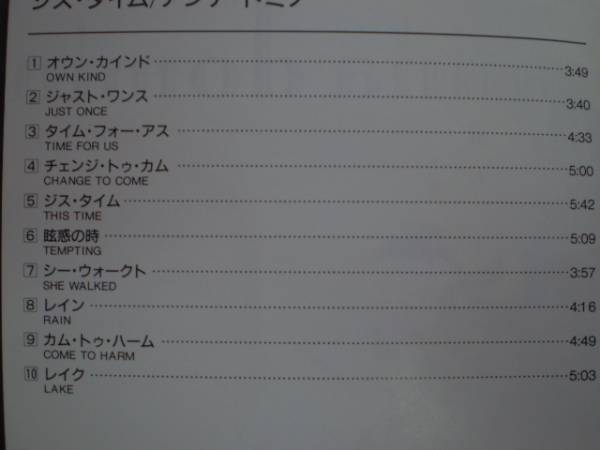 ジス・タイム/アンナ・ドミノ
1 オウン・カインド 3:49
OWN KIND
2 ジャスト・ワンス 3:40
JUST ONCE
3 タイム・フォー・アス 4:33
TIME FOR US
4 チェンジ・トゥ・カム 5:00
CHANGE TO COME
5 ジス・タイム 5:42
THIS TIME
6 眩惑の時 5:09
TEMPTING
7 シー・ウォークト 3:57
SHE WALKED
8 レイン 4:16
RAIN
9 カム・トゥ・ハーム 4:49
COME TO HARM
10 レイク 5:03
LAKE